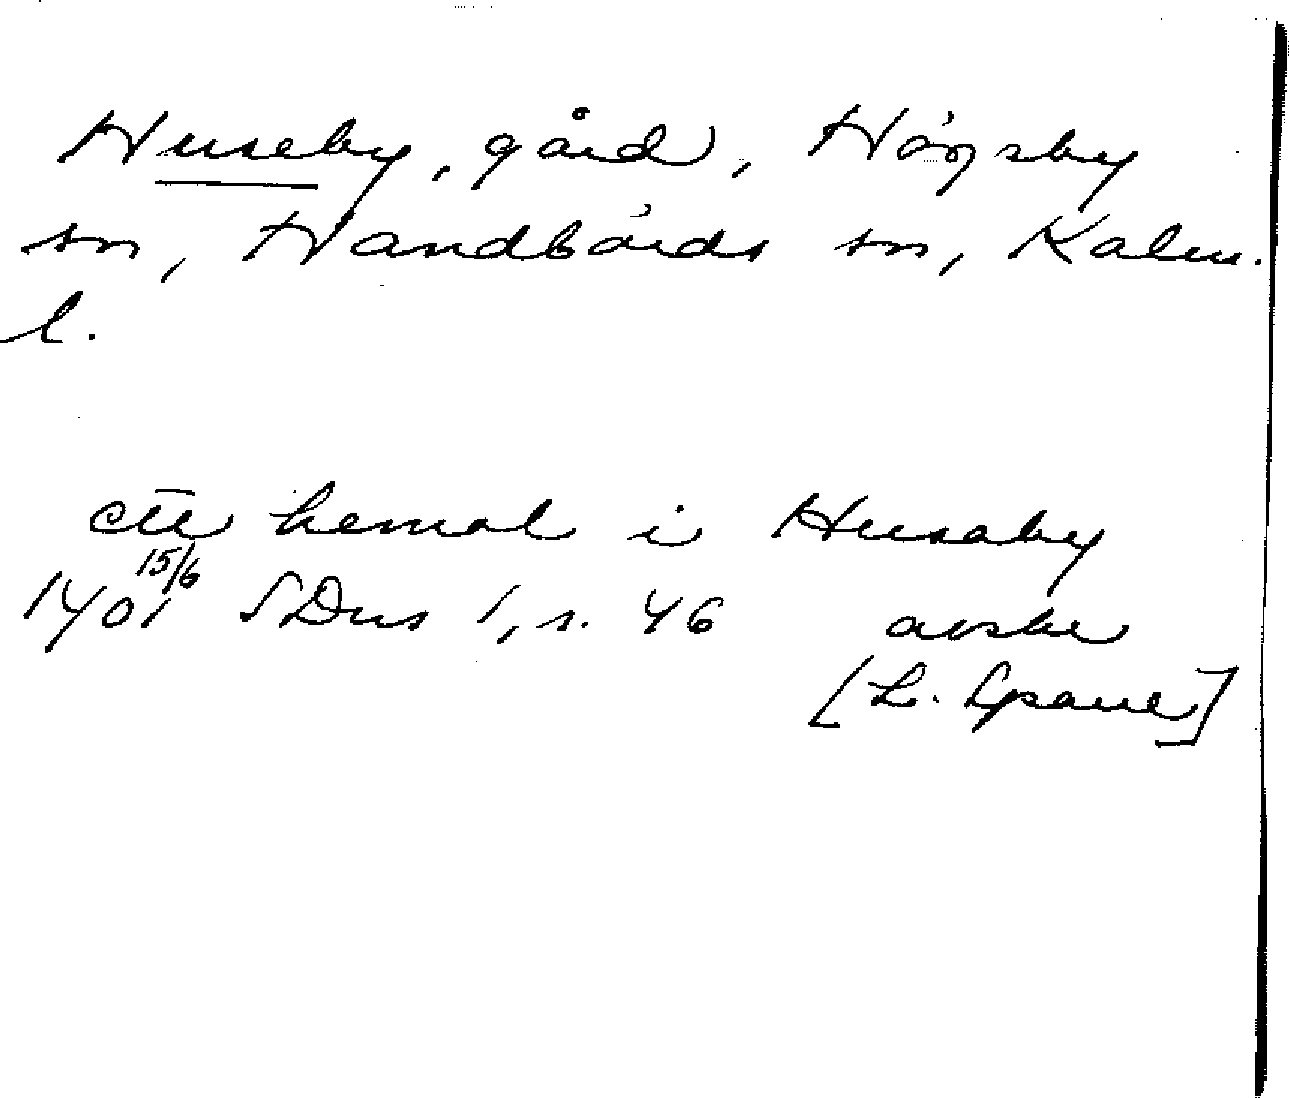 Huseby, gård, Högsby
sn, Handbörds sn, Kalm.
l.
ett hemal i Husaby
1401 15/6 SDns 1, s. 46 avskr
[L.